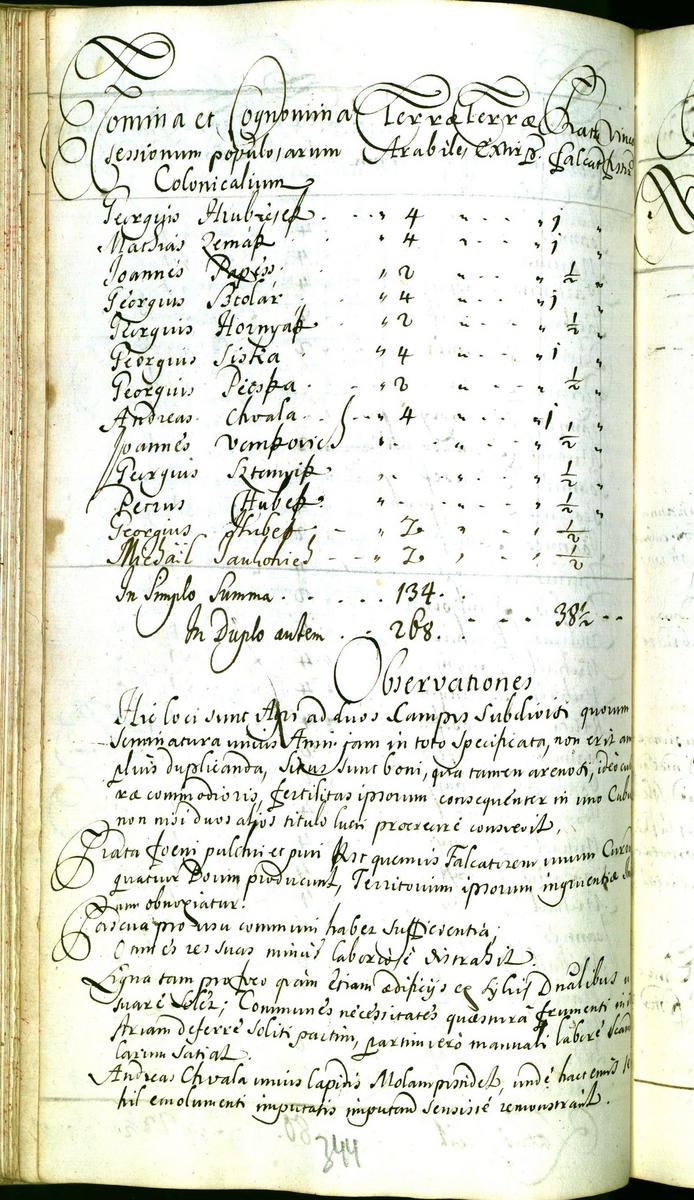 Nomina et Cognomina Terræ Terræ Prata
sessionum populosarum Arabiles Extirp. Falcat.
Colonicalium
Georgius Hrubresek " 4 " " 1 "
Mathias Zemak " 4 " " 1 "
Joannes Papess " 2 " " ½ "
Georgius Sztolar " 4 " " 1 "
Georgius Hornyak " 2 " " ½ "
Georgius Sistka " 4 " " 1 "
Georgius Pieska " 2 " " ½ "
Andreas Chvala " 4 " " 1 "
Joannes Vemkovich " " " ½ "
Georgius Sztanyik " " " ½ "
Petrus Hubek " " " ½ "
Georgius Hubek " 2 " " ½
Michail " 2 " " ½
In Simplo Summa 134.
38½
In Duplo autem 268.
Observationes
Hic loci sunt Agri ad duos Campos Subdivisi quorum
seminatura unius Anni jam in toto specificata, non erit am
plius duplicanda, Situs sunt boni, quia tamen arenosi, ideo cul
ræ commodioris, fertilitas ipsorum consequenter in uno Cubu
non nisi duos alios titulo lucri procreare consvevit,
Prata foeni pulchri et puri quemvis Falcatorem unum Curru
quatuor Boum producunt, Territorium ipsorum ingruentiæ
um obnoxiatur.
Pascua pro usu communi habet sufficientia;
Omnes res suas minus laboriose distrahit.
Ligna tam pro foco quam etiam ædificijs ex sylvis Dnalibus
suare solet; Communes necessitates quæstura frumenti in
Atriam deferre soliti partim, partim vero manuali labore
larum Satiat.
Andreas Chvala unius lapidis Molam possidet, unde hactenus
hil emolumenti imputasse remonstrant.
344